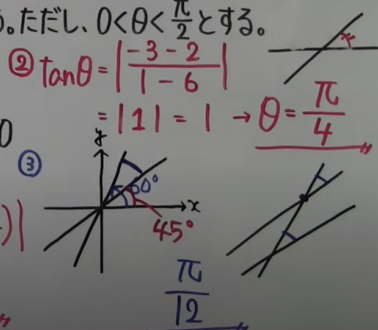 。ただし、0<θ<π/2とする。
② tanθ = |(-3-2)/(1-6)|
= |1| = 1 → θ = π/4
0
③
y
60°
x
45°
)|
π/12